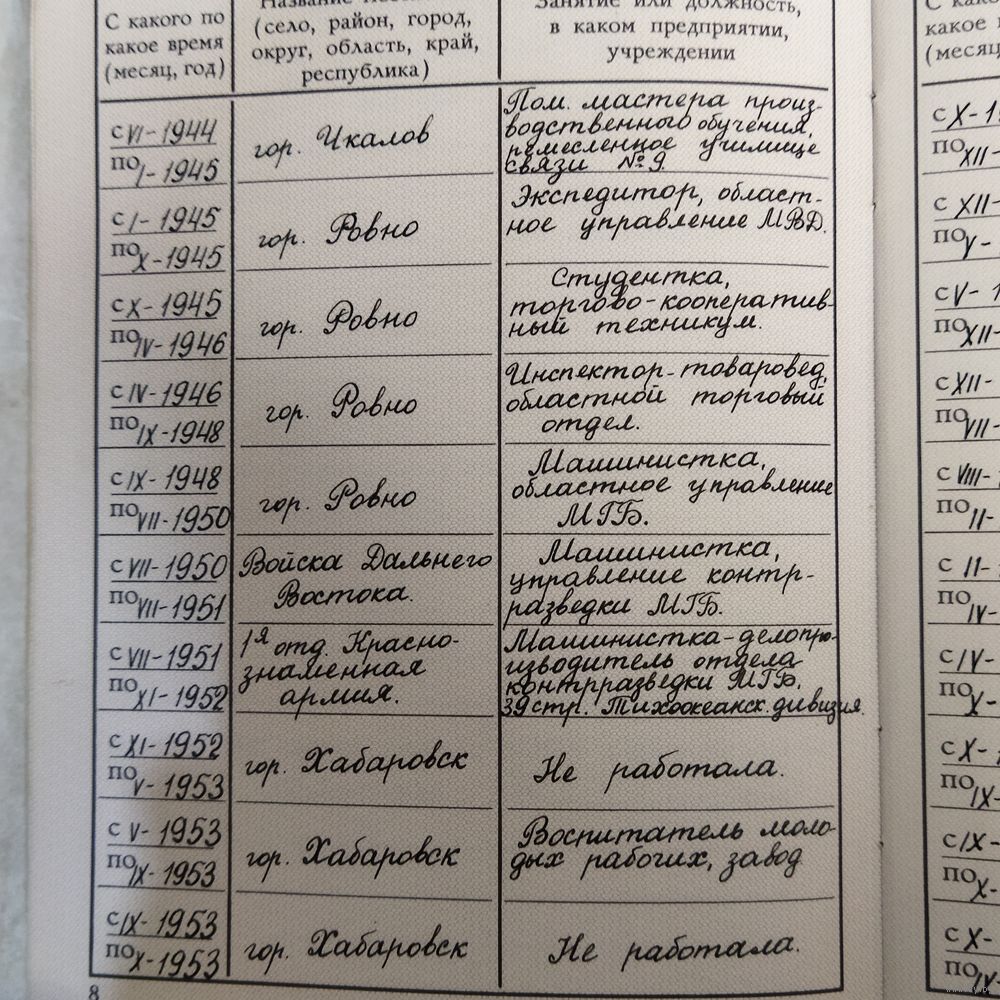 С какого по
какое время
(месяц, год)
(село, район, город,
округ, область, край,
республика)
Занятие или должность,
в каком предприятии,
учреждении
с VI - 1944
по I - 1945
гор. Чкалов
Пом. мастера произ-
водственного обучения,
ремесленное училище
связи № 9.
с I - 1945
по X - 1945
гор. Ровно
Экспедитор, област-
ное управление МВД.
с X - 1945
по IV - 1946
гор. Ровно
Студентка,
торгово-кооператив-
ный техникум.
с IV - 1946
по IX - 1948
гор. Ровно
Инспектор-товаровед,
областной торговый
отдел.
с IX - 1948
по VII - 1950
гор. Ровно
Машинистка,
областное управление
МГБ.
с VII - 1950
по VII - 1951
Войска Дальнего
Востока.
Машинистка,
управление контр-
разведки МГБ.
с VII - 1951
по XI - 1952
1я отд. Красно-
знаменная
армия.
Машинистка-делопро-
изводитель отдела
контрразведки МГБ.
39 стр. Тихоокеанск. дивизия.
с XI - 1952
по V - 1953
гор. Хабаровск
Не работала.
с V - 1953
по IX - 1953
гор. Хабаровск
Воспитатель моло-
дых рабочих, завод
с IX - 1953
по X - 1953
гор. Хабаровск
Не работала.
8
какое
(месяц
с X - 19
по XII -
с XII -
по V -
с V - 1
по XII -
с XII -
по VII -
с VIII -
по II -
с II -
по IV -
с IV -
по X -
с X -
по IX -
с IX -
по X -
с X -
по IV